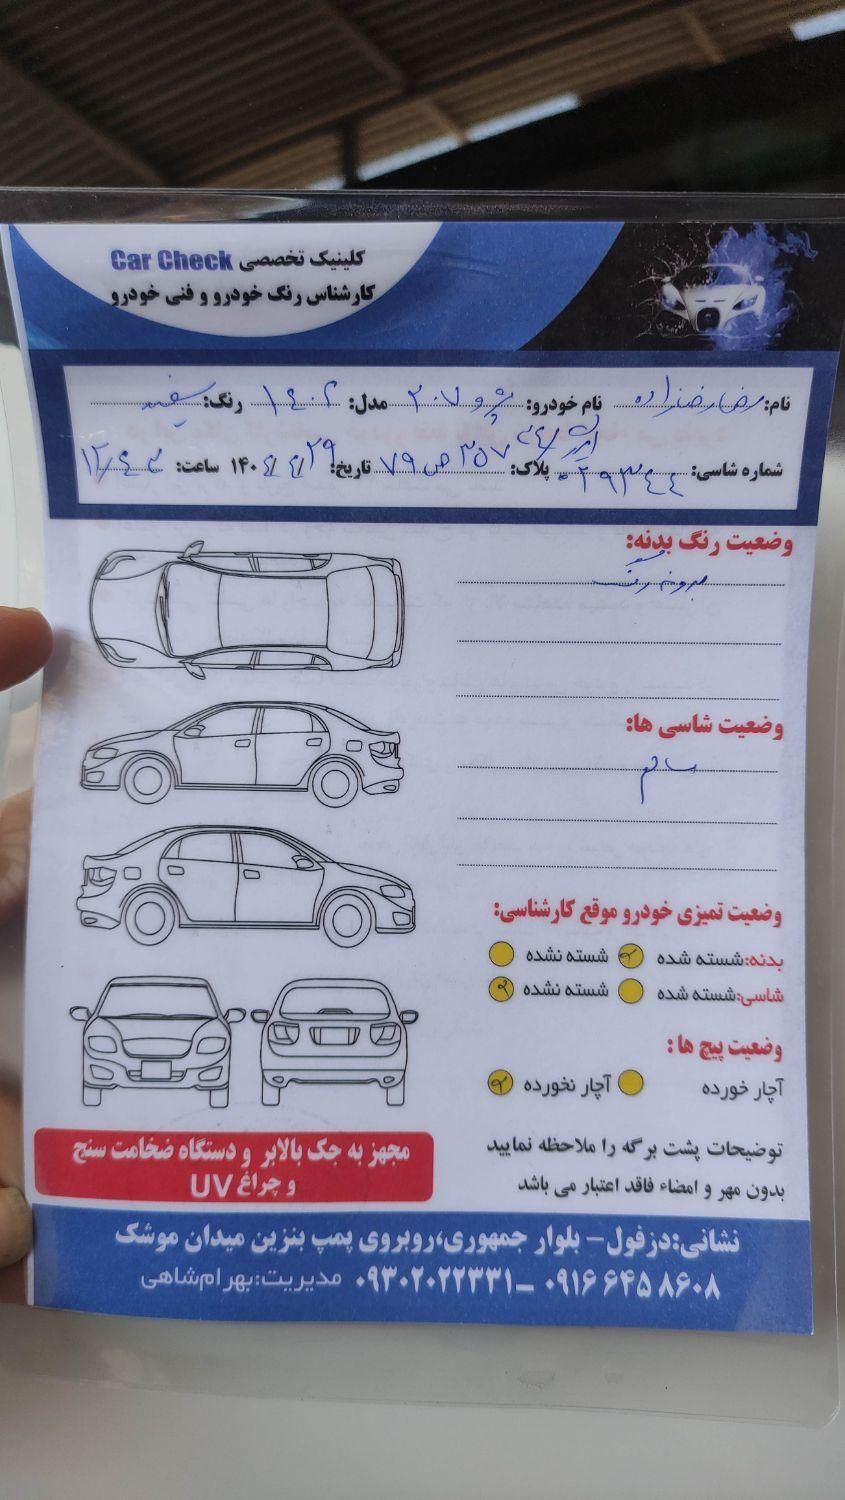 کلینیک تخصصی Car Check
کارشناس رنگ خودرو و فنی خودرو
نام: رضا رضازاده نام خودرو: پژو ۲۰۷ مدل: ۱۴۰۲ رنگ: سفید
ایران ۲۴
شماره شاسی: ۰۲۹۳۴۴ پلاک: ۳۵۷ ص ۷۹ تاریخ: ۲۹/۴/۱۴۰۴ ساعت: ۱۲/۴۳
وضعیت رنگ بدنه:
بدون رنگ
وضعیت شاسی ها:
سالم
وضعیت تمیزی خودرو موقع کارشناسی:
بدنه: شسته شده شسته نشده
شاسی: شسته شده شسته نشده
وضعیت پیچ ها:
آچار خورده آچار نخورده
توضیحات پشت برگه را ملاحظه نمایید
بدون مهر و امضاء فاقد اعتبار می باشد
مجهز به جک بالابر و دستگاه ضخامت سنج
و چراغ UV
نشانی: دزفول - بلوار جمهوری، روبروی پمپ بنزین میدان موشک
۰۹۱۶۶۴۵۸۶۰۸ - ۰۹۳۰۲۰۲۲۳۳۱ مدیریت: بهرام شاهی